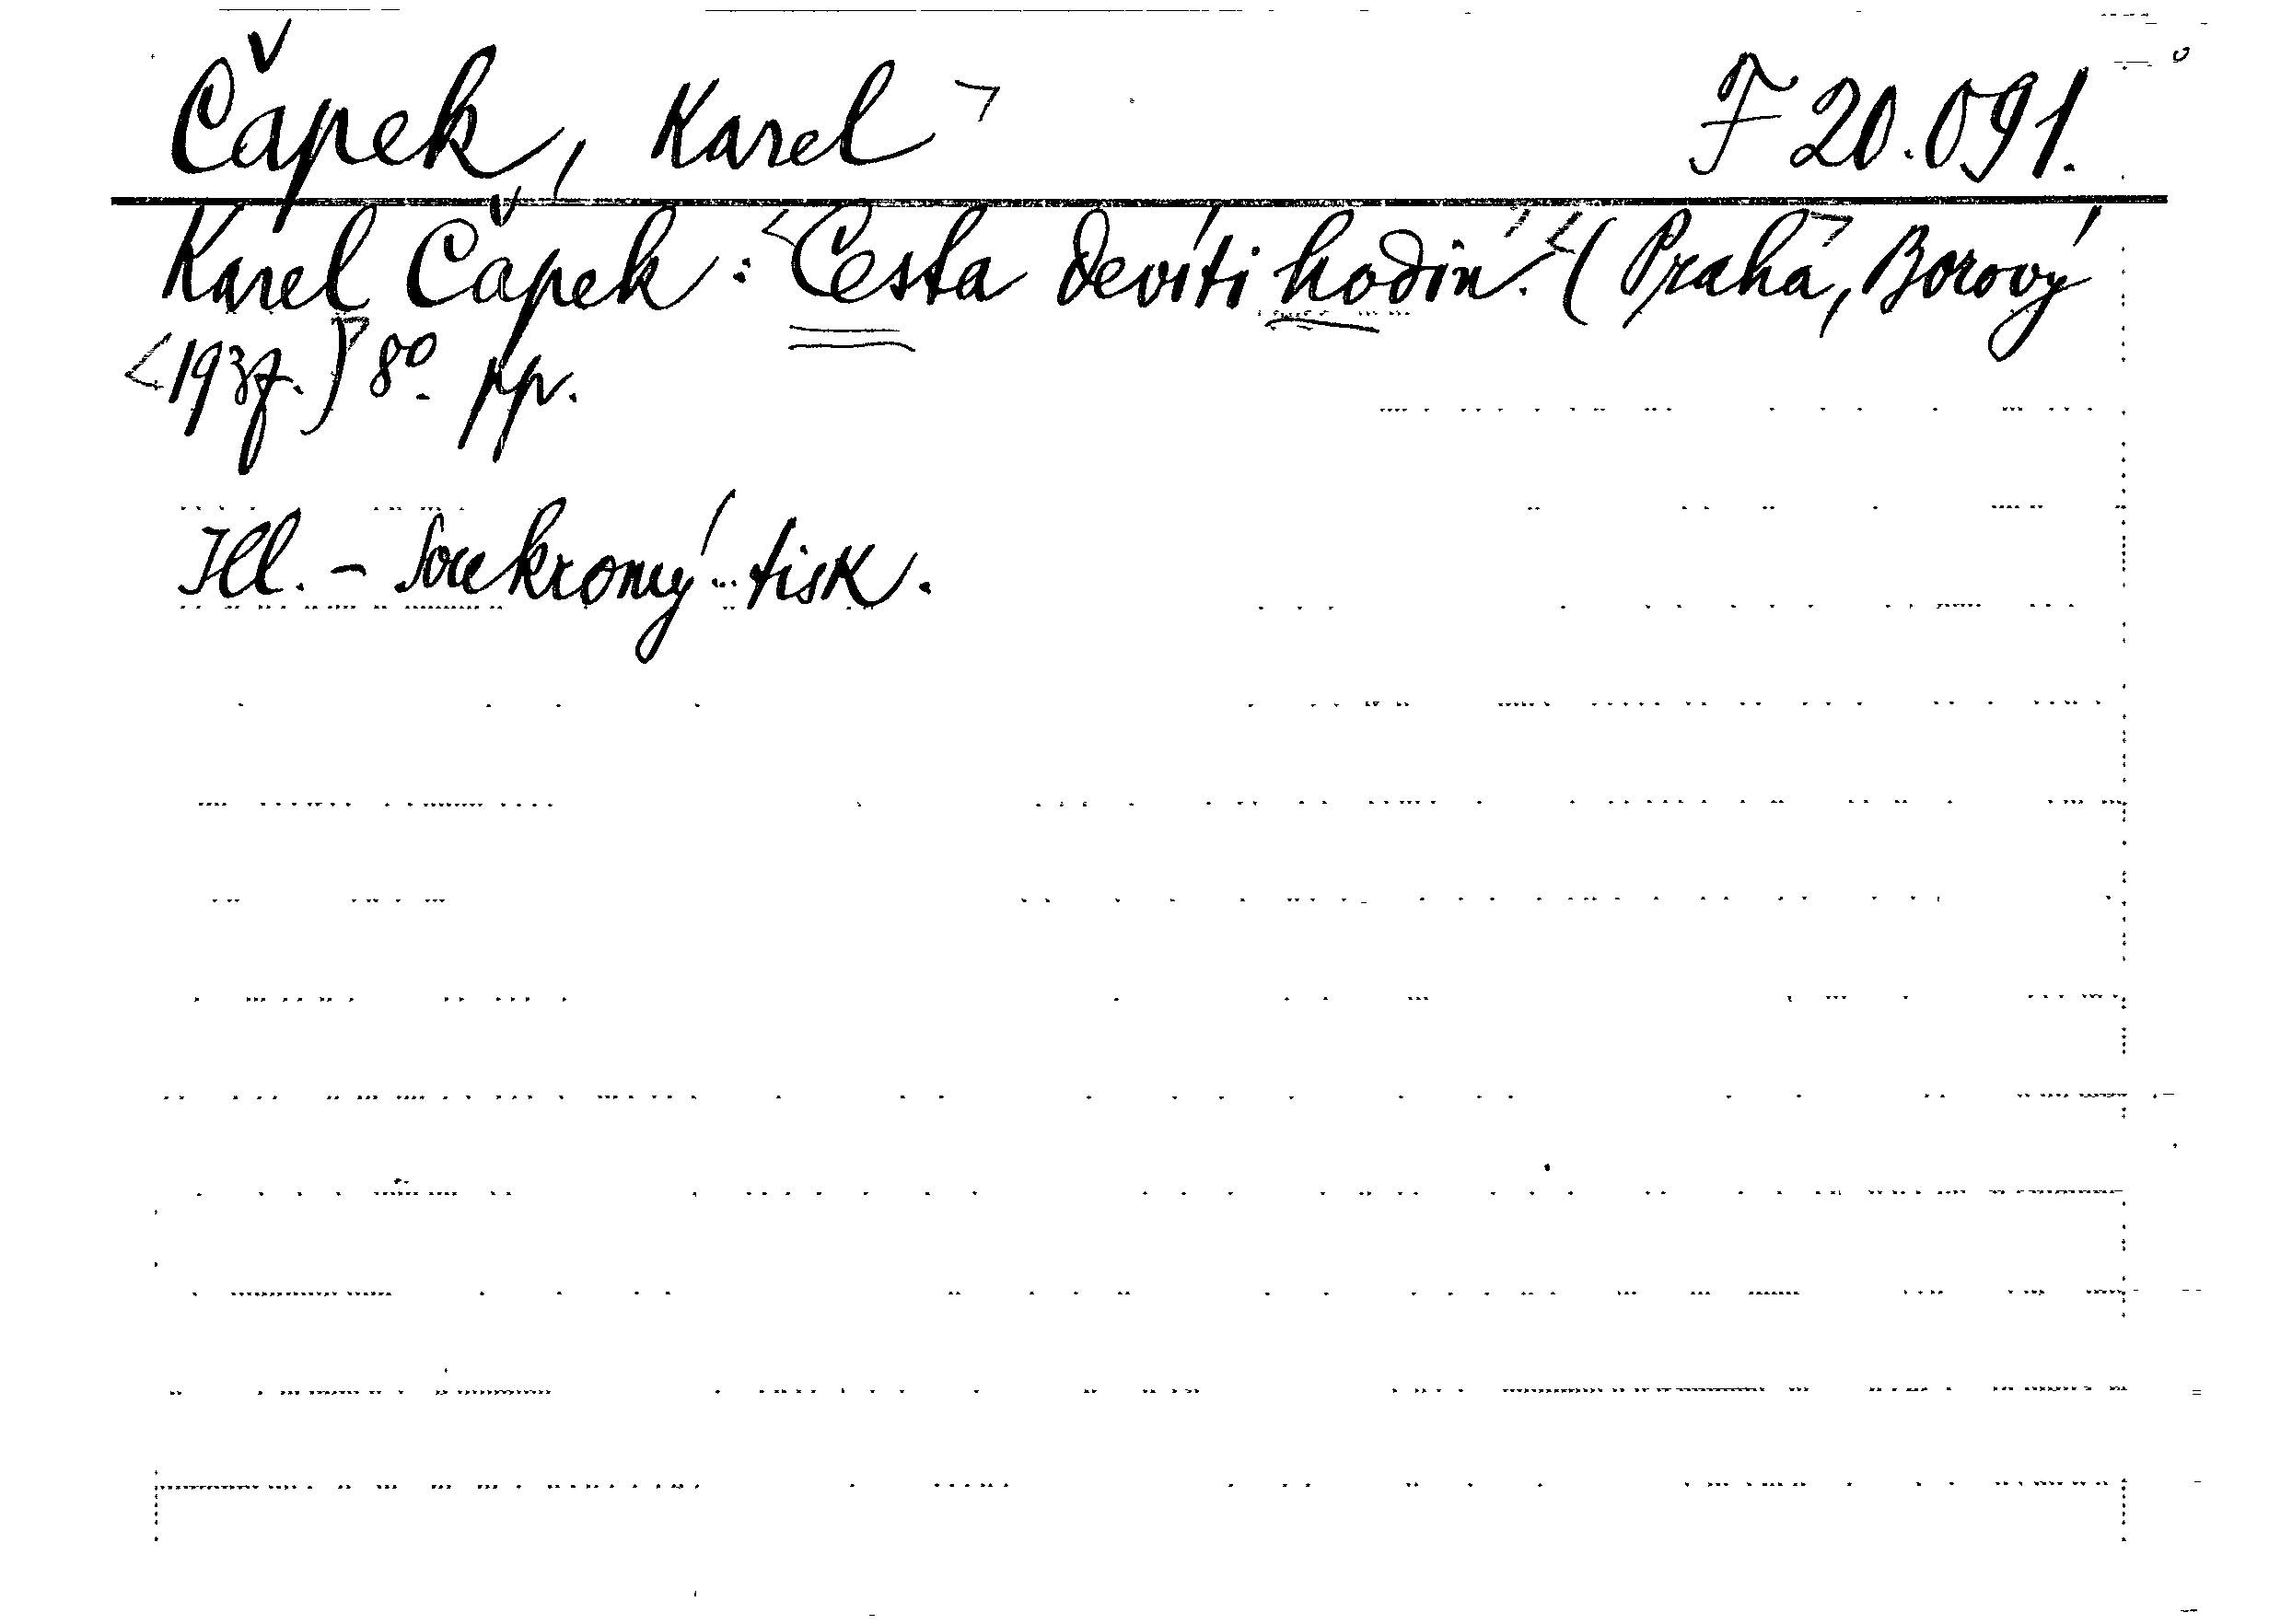 Čapek, Karel F 20.091.
Karel Čapek: Cesta devíti hodin. (Praha, Borový
1937.) 8º. pp.
Ill. - Soukromý tisk.